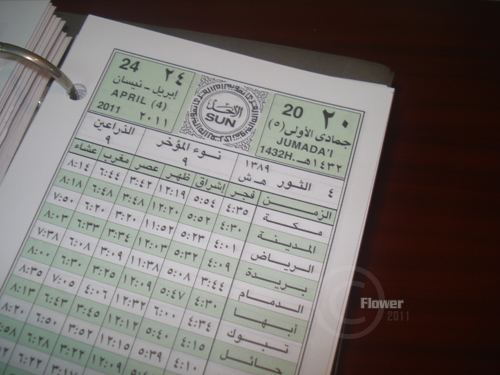 24 ٢٤
إبريل - نيسان
APRIL (4)
2011 ٢٠١١
الأحد
SUN
20 ٢٠
جمادى الأولى (٥)
JUMADA'I
1432H. ١٤٣٢هـ
٤ الثور ١٣٨٩ هـ ش
نوء المؤخر ٩
الذراعين ٩
الزمن فجر إشراق ظهر عصر مغرب عشاء
مكة ٤:٣٥ ٥:٥٤ ١٢:١٩ ٣:٤٢ ٦:٤٤ ٨:١٤
المدينة ٤:٣٠ ٥:٥٢ ١٢:٢٠ ٣:٤٤ ٦:٤٨ ٨:١٨
الرياض ٤:٠١ ٥:٢٣ ١١:٥٢ ٣:١٨ ٦:٢٠ ٧:٥٠
بريدة ٤:٠٩ ٥:٣٢ ١٢:٠٣ ٣:٣٢ ٦:٣٣ ٨:٠٣
الدمام ٣:٤٤ ٥:٠٨ ١١:٣٨ ٣:٠٩ ٦:٠٨ ٧:٣٨
أبها ٤:٣٠ ٥:٤٧ ١٢:٠٩ ٣:٢٤ ٦:٣٠ ٨:٠٠
تبوك ٤:٣٤ ٦:٠٠ ١٢:٣٢ ٤:٠٥ ٧:٠٥ ٨:٣٥
حائل ٥:٤٠ ١٢:١٢ ٣:٤٥ ٦:٤٣ ٨:١٣
Flower
2011